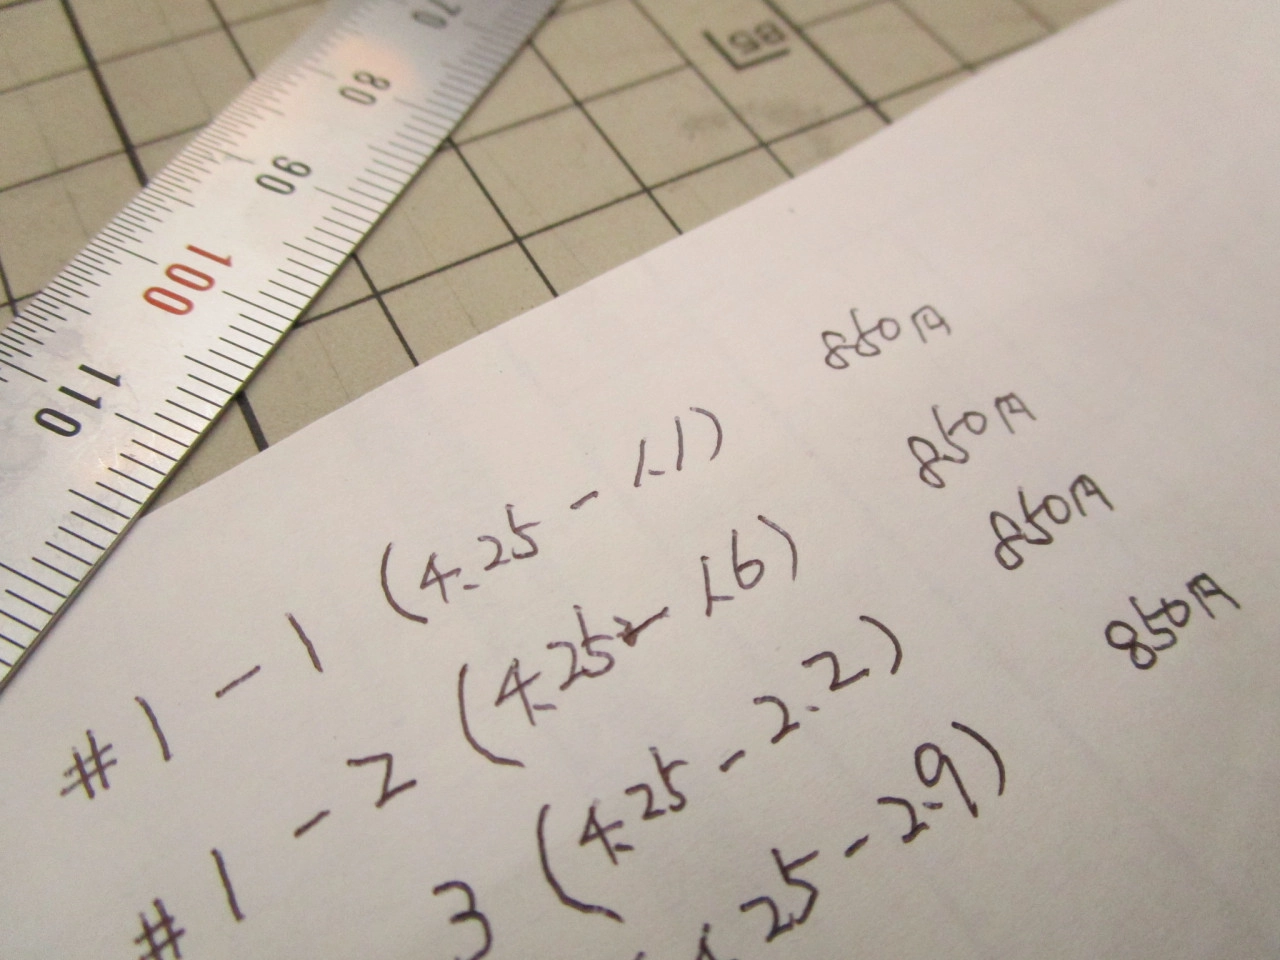 70
80
90
100
110
B5
#1 - 1 (4.25 - 1.1) 850A
#1 - 2 (4.25 - 1.6) 850A
3 (4.25 - 2.2) 850A
25 - 2.9) 850A